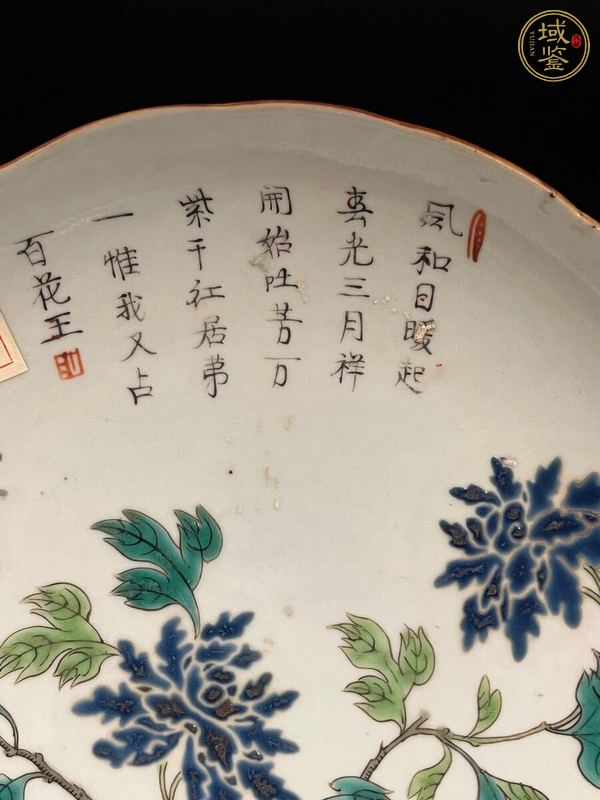 風和日暖起
春光三月祥
開始吐芳万
紫千红居苐
一惟我又占
百花王
域鉴
YUJIAN